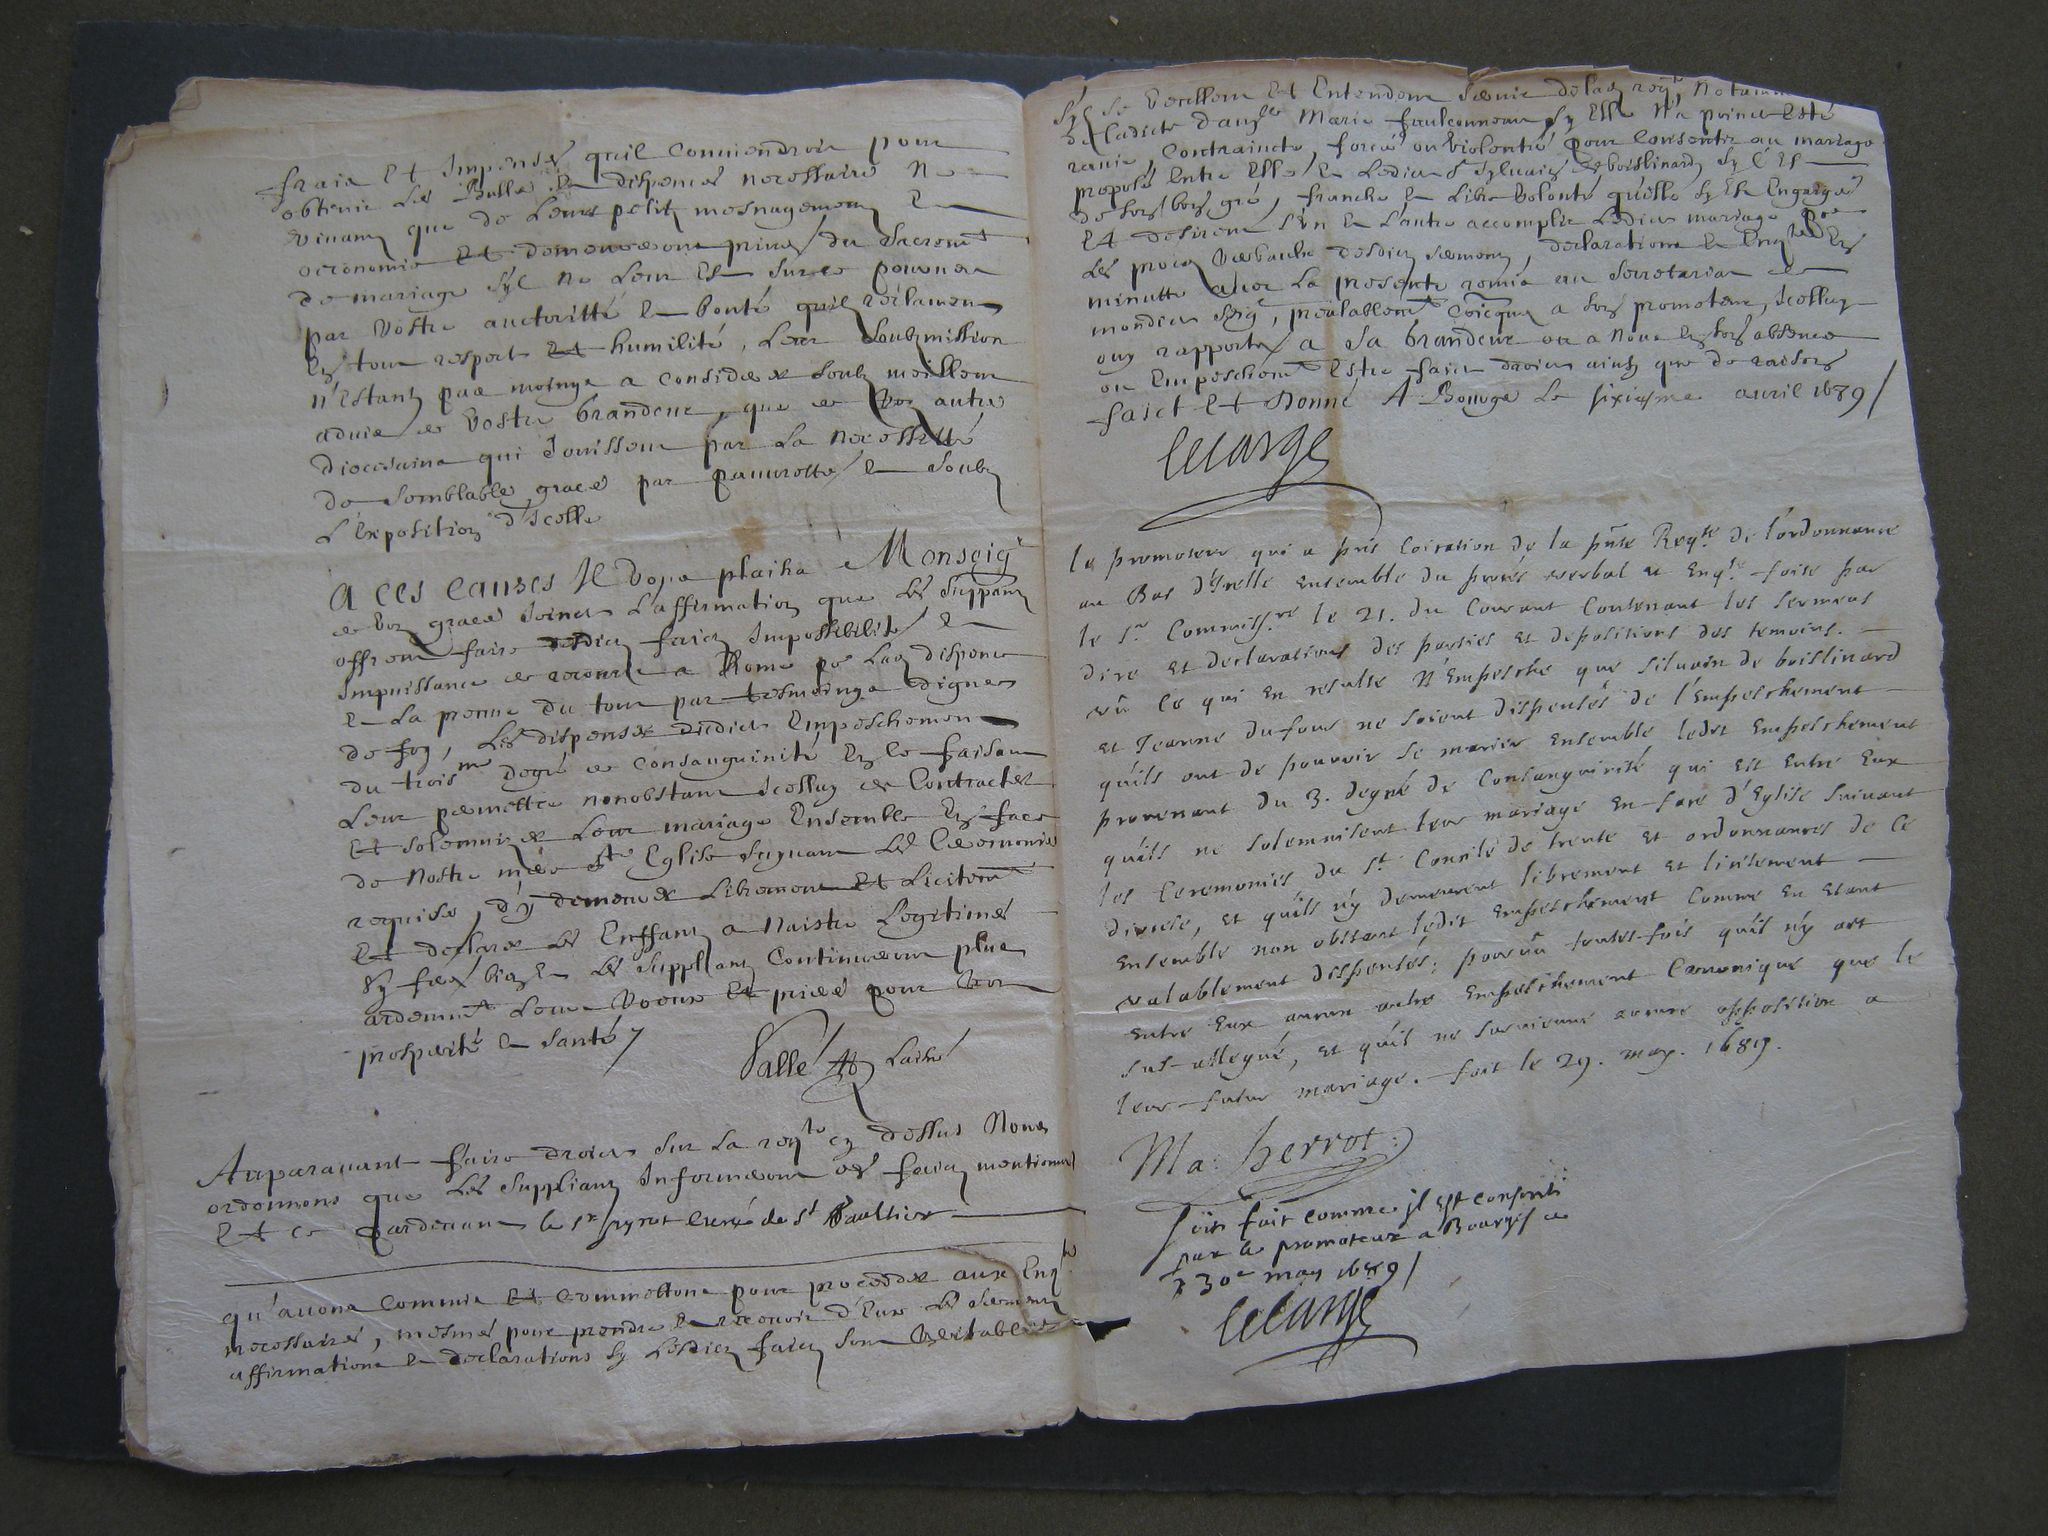 fraix Et Impenses quil Conviendroit pour
obtenir Les Bulles Et dispences necessaires Ne
vivans que de Leurs petitz mesnagement Et
oeconomie Et demeureront privez du Sacremt
de mariage syl ne Leur Est Sur ce pourveu
par Vostre aucthoritté Et bonté quilz réclament
En tout respect Et humilité, Leur Soubzmission
n'Estant pas moings a considerer Soubz meilleur
advis de Vostre Grandeur, que de Vos autres
diocesains qui Jouissent par La necessitté
de Semblables graces par pauvrettez Et Soubz
L'Exposition d'Icelle
A CES CAUSES Il vous plaira Monseigr
de Voz graces Joinct L'affirmation que Les Supplians
offrent faire desdictz faictz Impossibilité Et
Impuissance de recourir a Rome pr Lad dispence
Et La preuve du tout par tesmoings dignes
de foy, Les dispenser dudict Empeschement
du troisme degré de Consanguinité En ce faisant
Leur permettre nonobstant Icelluy de Contracter
Et solemnizer Leur mariage Ensemble En face
de Nostre mère Ste Eglise Suyvant Les Ceremonies
requises, d'y demeurer Librement Et Licitemt
Et declarer Les Enffans a Naistre Legitimes
Sy ferez bien Et Les Supplians Continueront plus
ardemmt Leurs Voeux Et prieres pour Vos
prosperité Et Santé
Vallé Laisné
Auparavant faire droict Sur La reqte cy dessus Nous
ordonnons que Les Supplians Informeront des faictz mentionnez
Et ce pardevant le sr pyrot Curé de St Gaultier
qu'avons Commis Et Commettons pour proceder aux Enqtes
necessaires, mesmes pour prendre Et recevoir d'Eux Les Serments
affirmations Et declarations Sy Lesdictz faictz Sont Veritables
Sy Se Veullent Et Entendent Servir de lad reqte, Notamment
Ladicte damlle Marie faulconneau Sy Elle N'a point Esté
ravie, Contraincte, forcée ou violentée pour Consentir au mariage
proposé Entre Elle Et Ledict Sr Sylvain de boislinard Sy C'Est
de Son bon gré, franche Et Libre Volonté qu'elle Sy Est Engagée
Et desirent L'un Et L'autre accomplir Ledict mariage
Les procez Verbaulx desdictz Serments, declarations Et Enqtes En
minutte avec La presente remis au Secretariat de
mondict Seigr, prealablemt Coicqué a Son promoteur, Icelluy
ouy rapporter a Sa Grandeur ou a Nous En Son absence
ou Empeschemt Estre faict droict ainsy que de raison
faict Et donné A Bourges Le sixiesme avril 1689
Lelarge
le promoteur qui a pris Coication de la pnte Reqte de l'ordonnance
au Bas d'Icelle ensemble du procés verbal et Enqte faite par
le Sr Commissre le 21. du Courant Contenant les sermens
dire et declarations des parties et depositions des temoins.
vû Ce qui En resulte N'Empesche que silvain de boislinard
et Jeanne dufour ne soient dispensés de l'Empeschement
qu'ils ont de pouvoir se marier ensemble ledit Empeschement
provenant du 3. degré de Consanguinité qui est entre Eux
qu'ils ne solemnisent leur mariage en face d'Eglise suivant
les Ceremonies du St. Concile de trente et ordonnances de Ce
diocese, et qu'ils n'y demeurent librement et licitement
ensemble non obstant ledit Empeschement Comme en etant
valablement dispensés; pourvû toutes-fois qu'il n'y ait
entre Eux aucun autre Empeschement Canonique que le
sus-allegué, et qu'il ne survienne aucune opposition a
leur futur mariage. fait le 29. may. 1689.
Ma: herrot
soit fait comme il est consenti
par le promoteur a Bourges ce
30e may 1689
Lelarge